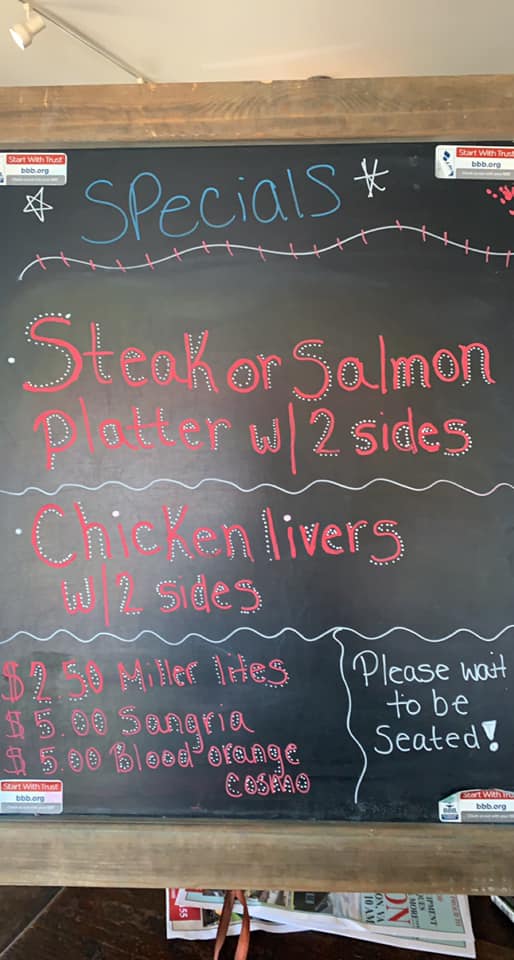 Start With Trust
bbb.org
Start With Trust
bbb.org
Specials
Steak or Salmon
Platter w/2 sides
Chicken livers
w/2 sides
$2.50 Miller lites
$5.00 Sangria
$5.00 Blood orange
Cosmo
Please wait
to be
Seated!
Start With Trust
bbb.org
Start With Tru
bbb.org